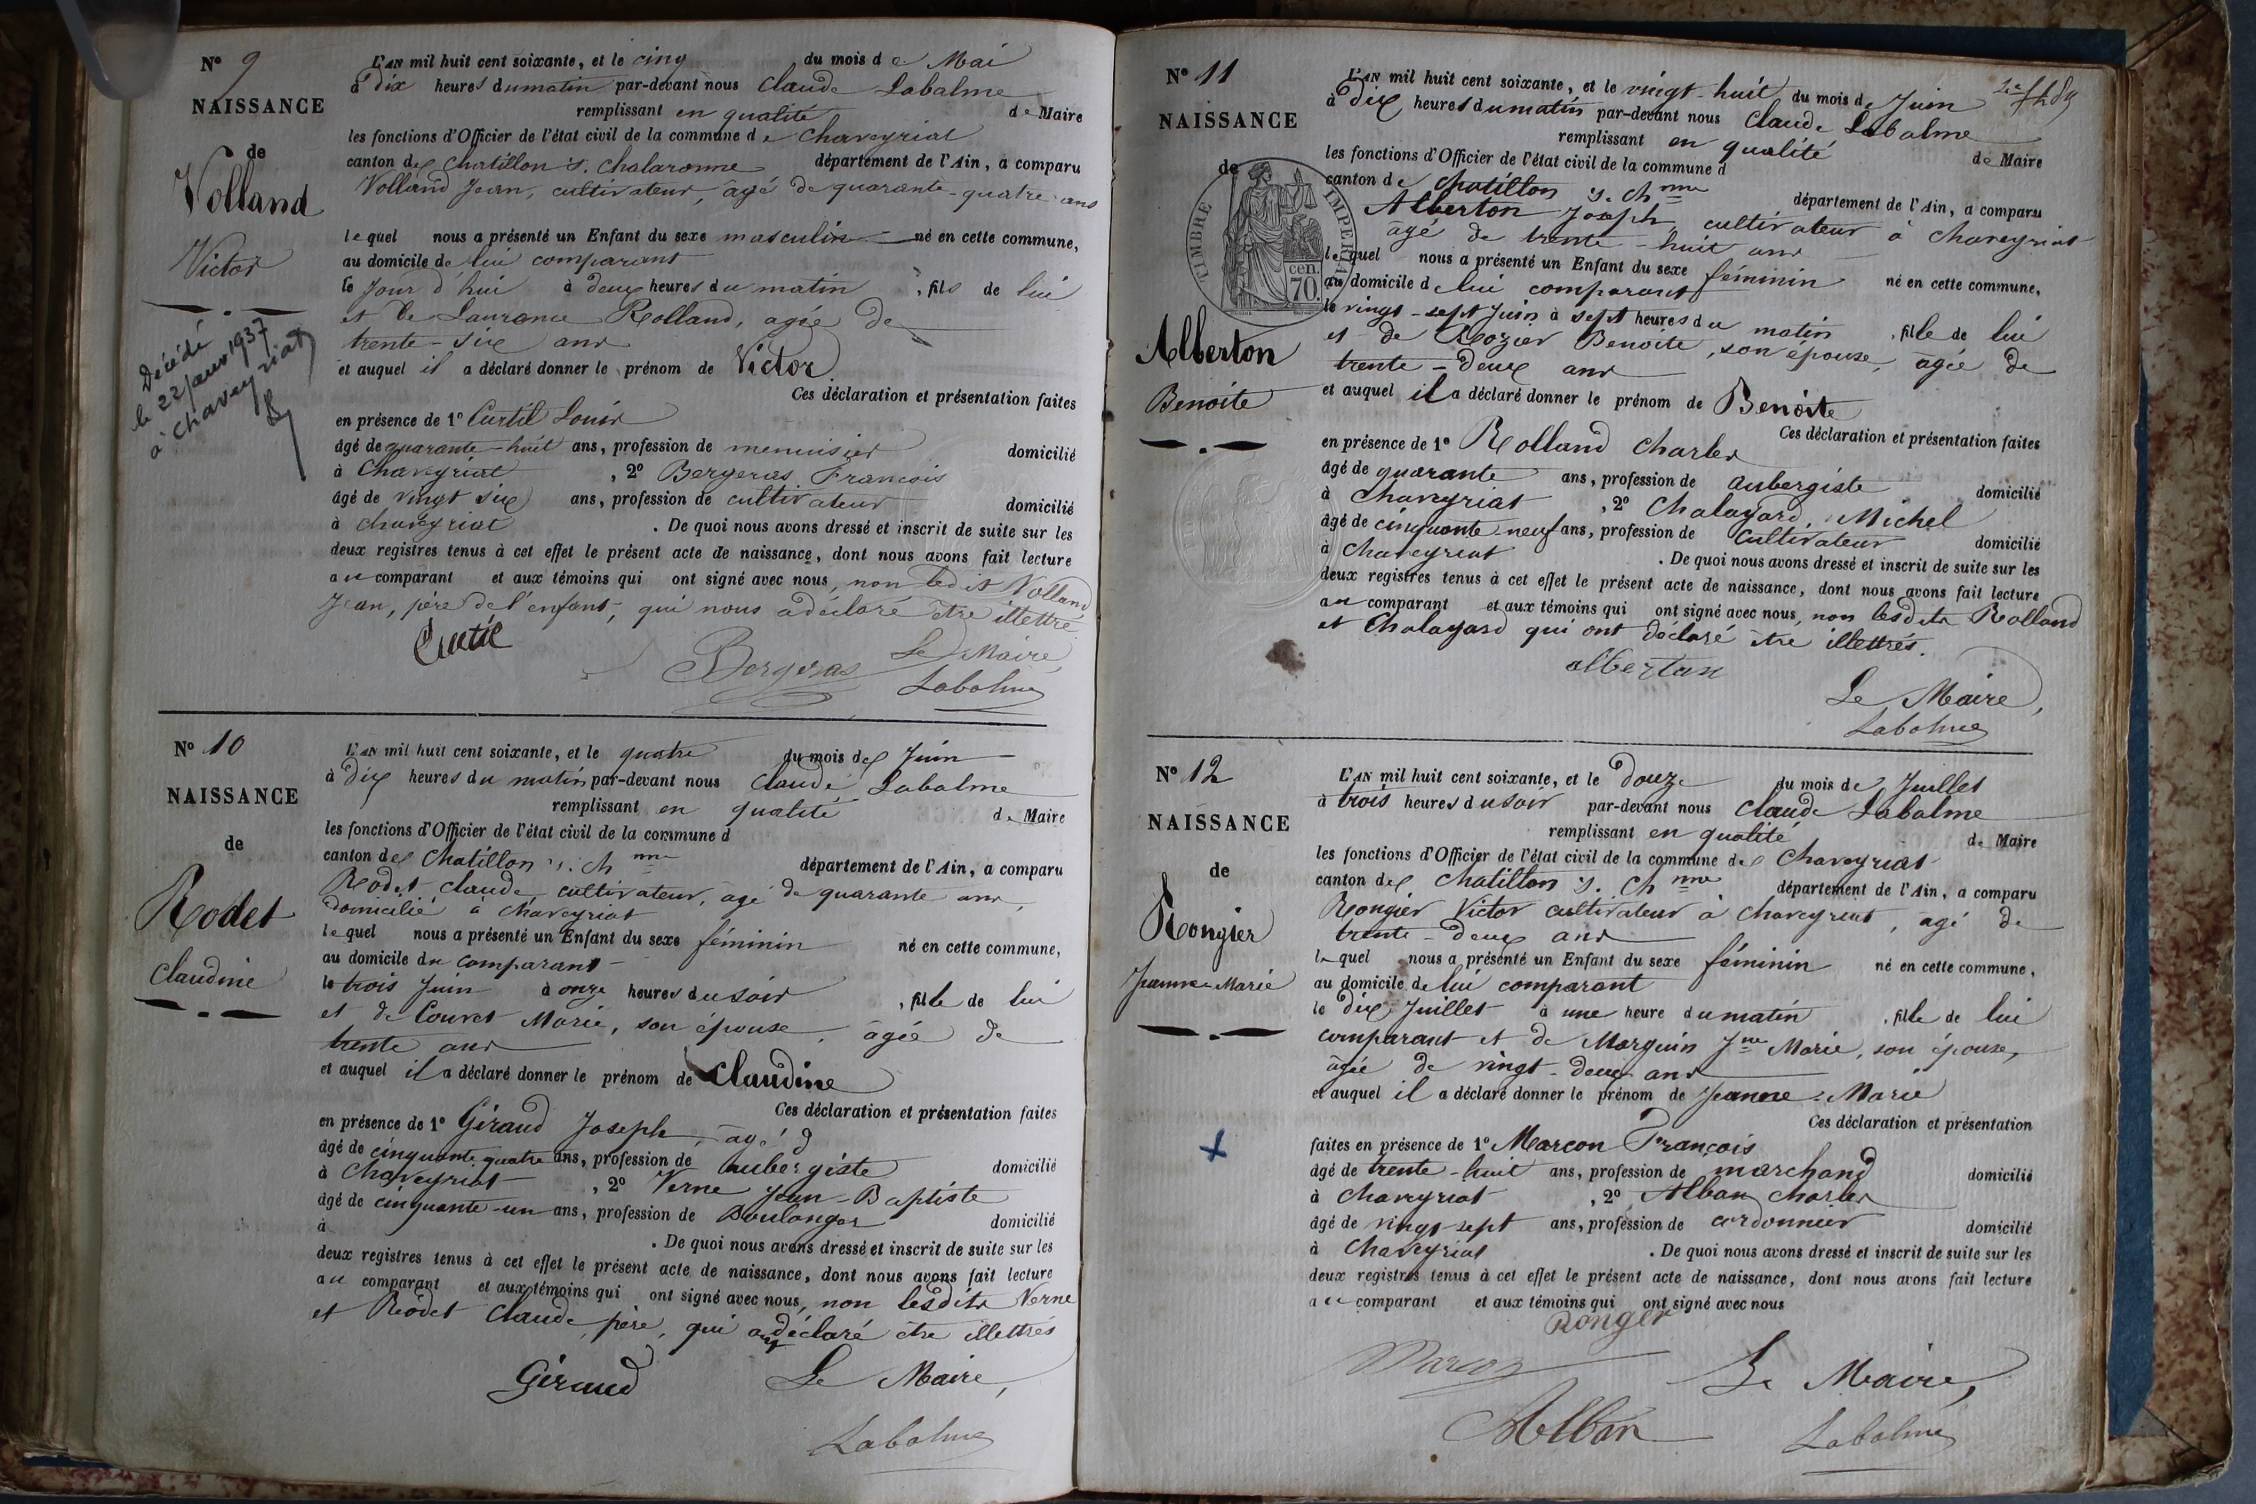 N° 9
NAISSANCE
de
Volland
Victor
Décédé
le 22 janv 1937
à Chaveyriat
L'AN mil huit cent soixante, et le cinq du mois de Mai
à dix heures du matin par-devant nous Claude Labalme
remplissant en qualité de Maire
les fonctions d'Officier de l'état civil de la commune de Chaveyriat
canton de Chatillon s. Chalaronne département de l'Ain, a comparu
Volland Jean, cultivateur, âgé de quarante-quatre ans
lequel nous a présenté un Enfant du sexe masculin né en cette commune,
au domicile de lui comparant
le jour d'hui à deux heures du matin, fils de lui
et de Laurence Rolland, agée de
trente-six ans
et auquel il a déclaré donner le prénom de Victor
Ces déclaration et présentation faites
en présence de 1° Curtil Louis
âgé de quarante-huit ans, profession de menuisier domicilié
à Chaveyriat, 2° Bergeras François
âgé de vingt six ans, profession de cultivateur domicilié
à chaveyriat. De quoi nous avons dressé et inscrit de suite sur les
deux registres tenus à cet effet le présent acte de naissance, dont nous avons fait lecture
au comparant et aux témoins qui ont signé avec nous, non ledit Volland
Jean, père de l'enfant, qui nous a déclaré être illettré
Curtil
Bergeras Le Maire
Labalme
N° 10
NAISSANCE
de
Rodet
Claudine
L'AN mil huit cent soixante, et le quatre du mois de Juin
à dix heures du matin par-devant nous Claude Labalme
remplissant en qualité de Maire
les fonctions d'Officier de l'état civil de la commune d
canton de Chatillon s. Ch nne département de l'Ain, a comparu
Rodet Claude, cultivateur, agé de quarante ans,
domicilié à Chaveyriat
lequel nous a présenté un Enfant du sexe féminin né en cette commune,
au domicile du comparant
le trois Juin à onze heures du soir, fille de lui
et de Couvet Marie, son épouse, agée de
trente ans
et auquel il a déclaré donner le prénom de Claudine
Ces déclaration et présentation faites
en présence de 1° Giraud Joseph, âgé d
âgé de cinquante quatre ans, profession de aubergiste domicilié
à Chaveyriat, 2° Verne Jean-Baptiste
âgé de cinquante-un ans, profession de Boulanger domicilié
à . De quoi nous avons dressé et inscrit de suite sur les
deux registres tenus à cet effet le présent acte de naissance, dont nous avons fait lecture
au comparant et aux témoins qui ont signé avec nous, non lesdits Verne
et Rodet Claude, père, qui ont déclaré être illettrés
Giraud Le Maire,
Labalme
N° 11
NAISSANCE
de
TIMBRE IMPERIAL
cen.
70.
Alberton
Benoite
L'AN mil huit cent soixante, et le vingt-huit du mois de Juin
à Dix heures du matin par-devant nous Claude Labalme
remplissant en qualité de Maire
les fonctions d'Officier de l'état civil de la commune d
canton de Chatillon s. Ch nne département de l'Ain, a comparu
Alberton Joseph, cultivateur à Chaveyriat
agé de trente-huit ans
lequel nous a présenté un Enfant du sexe féminin né en cette commune,
au domicile de lui comparant
le vingt-sept Juin à sept heures du matin, fille de lui
et de Rozier Benoite, son épouse, agée de
trente-deux ans
et auquel il a déclaré donner le prénom de Benoite
Ces déclaration et présentation faites
en présence de 1° Rolland Charles
âgé de quarante ans, profession de aubergiste domicilié
à Chaveyriat, 2° Chalayard, Michel
âgé de cinquante neuf ans, profession de cultivateur domicilié
à Chaveyriat. De quoi nous avons dressé et inscrit de suite sur les
deux registres tenus à cet effet le présent acte de naissance, dont nous avons fait lecture
au comparant et aux témoins qui ont signé avec nous, non lesdits Rolland
et Chalayard qui ont déclaré être illettrés.
albertan
Le Maire,
Labalme
N° 12
NAISSANCE
de
Rongier
Jeanne-Marie
L'AN mil huit cent soixante, et le douze du mois de Juillet
à trois heures du soir par-devant nous Claude Labalme
remplissant en qualité de Maire
les fonctions d'Officier de l'état civil de la commune de Chaveyriat
canton de Chatillon s. Ch nne département de l'Ain, a comparu
Rongier Victor cultivateur à Chaveyriat, agé de
trente-deux ans
lequel nous a présenté un Enfant du sexe féminin né en cette commune,
au domicile de lui comparant
le dix Juillet à une heure du matin, fille de lui
comparant et de Marguin Jne Marie, son épouse,
âgée de vingt-deux ans
et auquel il a déclaré donner le prénom de Jeanne-Marie
Ces déclaration et présentation
faites en présence de 1° Marcon François
âgé de trente-huit ans, profession de marchand domicilié
à Chaveyriat, 2° Alban Charles
âgé de vingt-sept ans, profession de cordonnier domicilié
à Chaveyriat. De quoi nous avons dressé et inscrit de suite sur les
deux registres tenus à cet effet le présent acte de naissance, dont nous avons fait lecture
au comparant et aux témoins qui ont signé avec nous
Ronger
Marcon Le Maire,
Alban Labalme